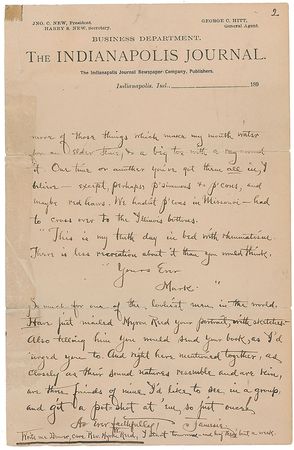 2
JNO. C. NEW, President.
HARRY S. NEW, Secretary.
GEORGE C. HITT,
General Agent.
BUSINESS DEPARTMENT.
THE INDIANAPOLIS JOURNAL.
The Indianapolis Journal Newspaper Company, Publishers.
Indianapolis, Ind., 189
more of those things which make my mouth water
for an elder time, & a big toe with a rag around
it. One time or another you've got them all in, I
believe — except, perhaps p'simmons & p'cons, and
maybe red haws. We hadn't p'cons in Missouri — had
to cross over to the Illinois bottoms.
"This is my tenth day in bed with rheumatism.
There is less recreation about it than you would think.
"Yours Ever
"Mark."
So much for one of the loveliest men in the world.
Have just mailed Myron Reed your portrait, with sketches.
Also telling him you would send your book, as I'd
urged you to. And right here mentioned together, as
closely as their sound natures resemble and are kin,
are three friends of mine I'd like to see in a group,
and get a pot-shot at 'em, so just once!
As ever faithfully, James.
Write me Denver, care Rev. Myron Reed, I start tomorrow and by there but a week.